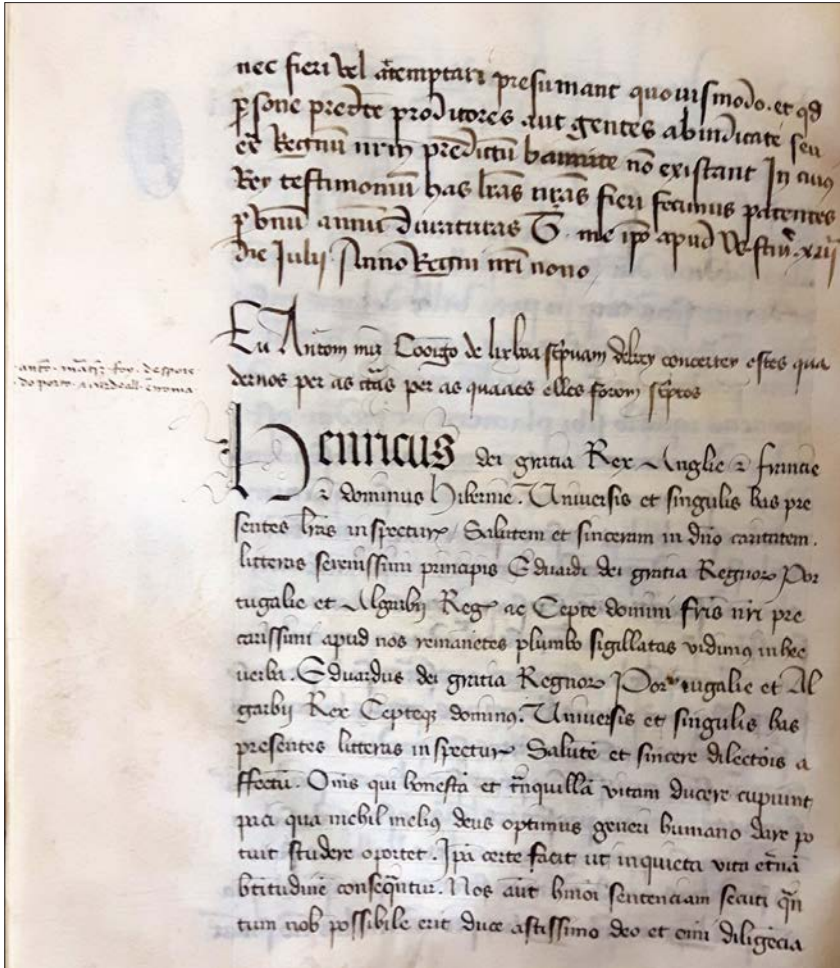 nec fieri vel attemptari presumant quouismodo. et qd
psone predcte proditores aut gentes abindicate seu
Regnū nrm predictū bannite nō existant In cuius
Rey testimoniū has lras nras fieri fecimus patentes
p vnū annū duraturas T. me ipo apud Westm. xxii
die Julii Anno Regni nri nono
Eu Antom miz de lixboa scpuam delrey concertey estes qua
dernos per as ctas per as quaaes elles forom scptos
do porto Cardeall roma
Henricus dei gratia Rex Anglie z francie
z dominus hibernie. Uniuersis et singulis has pre
sentes lras inspectur Salutem et sinceram in dno caritatem.
litteras serenissimi principis Eduardi dei gratia Regnorz Por
tugalie et Algarbij Reg ac Cepte domini fris nri pre
carissimi apud nos remanetes plumbo sigillatas vidimus in hec
uerba. Eduardus dei gratia Regnorz Portugalie et Al
garbij Rex Cepteqz dominus. Uniuersis et singulis has
presentes litteras inspectur Salutē et sincere dilectois a
ffectū. Omis qui honestā et tnquillā vitam ducere cupiunt
paci qua nichil melius deus optimus generi humano dare po
tuit studere oportet. Ipa certe facit ut in quieta vita etnā
btitudinē conseqntur. Nos aut hmoi sentenciam secuti qn
tum nob possibile erit duce altissimo deo et omi diligēcia